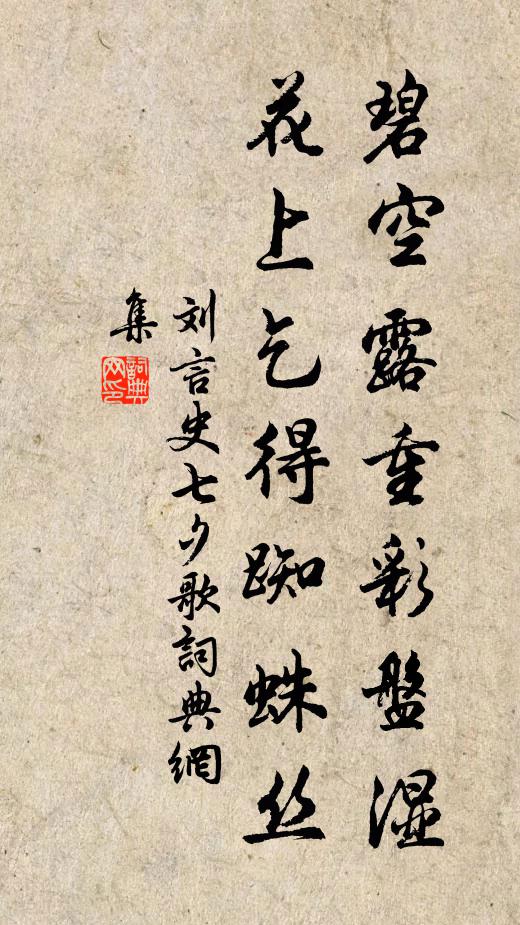 碧空露重彩盤湿
花上乞得踟蛛丝
刘言史七夕歌詞典網
集
詞典網印